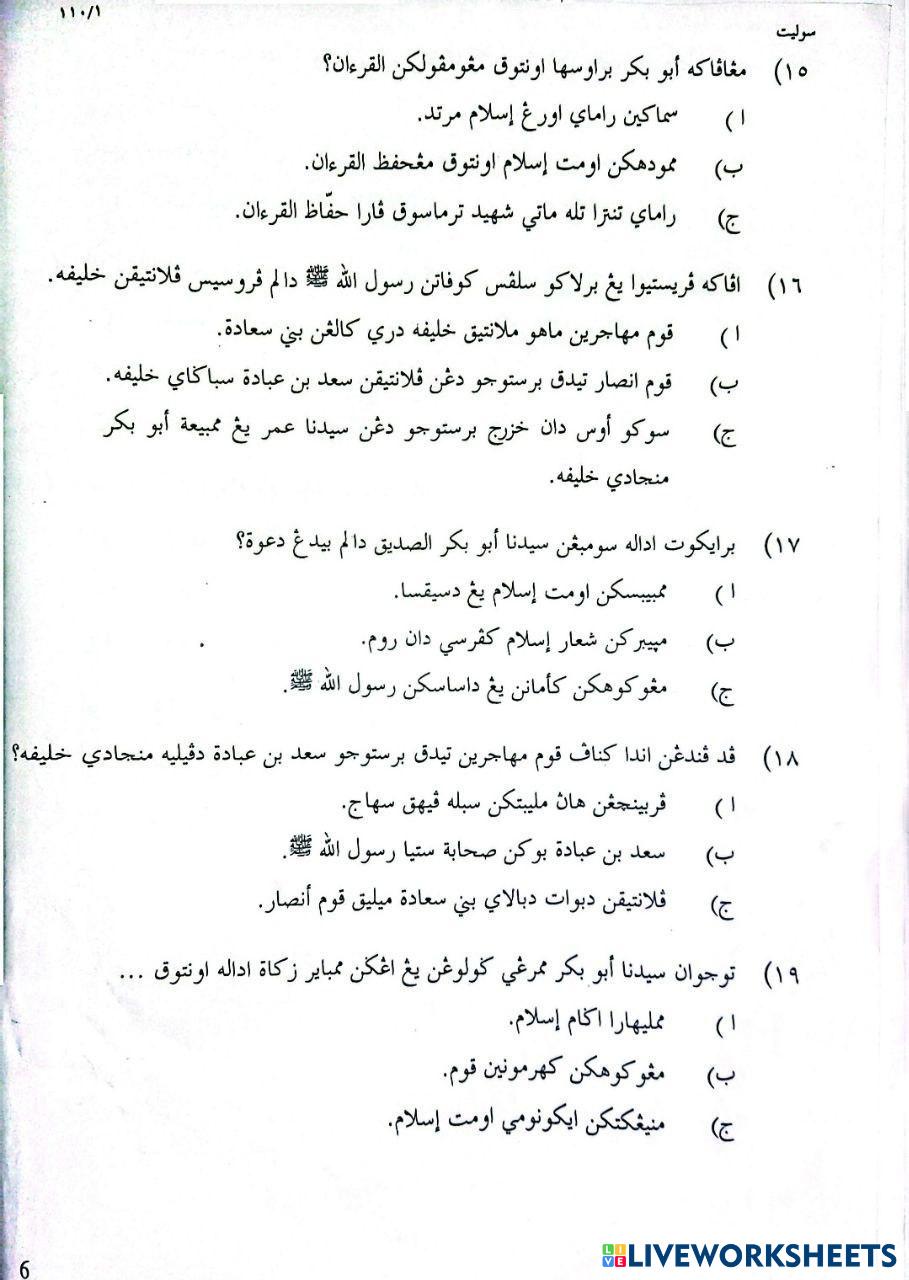 ١١٠/١
سوليت
١٥) مڠاڤاكه أبو بكر براوسها اونتوق مڠومڤولكن القرءان؟
ا ) سماكين راماي اورڠ إسلام مرتد.
ب) ممودهكن اومت إسلام اونتوق مڠحفظ القرءان.
ج) راماي تنترا تله ماتي شهيد ترماسوق ڤارا حفّاظ القرءان.
١٦) اڤاكه ڤريستيوا يڠ برلاكو سلڤس كوفاتن رسول الله ﷺ دالم ڤروسيس ڤلانتيقن خليفه.
ا ) قوم مهاجرين ماهو ملانتيق خليفه دري كالڠن بني سعادة.
ب) قوم انصار تيدق برستوجو دڠن ڤلانتيقن سعد بن عبادة سباݢاي خليفه.
ج) سوكو أوس دان خزرج برستوجو دڠن سيدنا عمر يڠ ممبيعة أبو بكر
منجادي خليفه.
١٧) برايكوت اداله سومبڠن سيدنا أبو بكر الصديق دالم بيدڠ دعوة؟
ا ) ممبيبسكن اومت إسلام يڠ دسيقسا.
ب) مڽيبركن شعار إسلام كڤرسي دان روم.
ج) مڠوكوهكن كأمانن يڠ داساسكن رسول الله ﷺ.
١٨) ڤد ڤندڠن اندا كناڤ قوم مهاجرين تيدق برستوجو سعد بن عبادة دڤيليه منجادي خليفه؟
ا ) ڤربينچڠن هاڽ مليبتكن سبله ڤيهق سهاج.
ب) سعد بن عبادة بوكن صحابة ستيا رسول الله ﷺ.
ج) ڤلانتيقن دبوات دبالاي بني سعادة ميليق قوم أنصار.
١٩) توجوان سيدنا أبو بكر ممرڠي ݢولوڠن يڠ اڠݢن ممباير زكاة اداله اونتوق ...
ا ) ممليهارا اݢام إسلام.
ب) مڠوكوهكن كهرمونين قوم.
ج) منيڠكتكن ايكونومي اومت إسلام.
6
LIVEWORKSHEETS